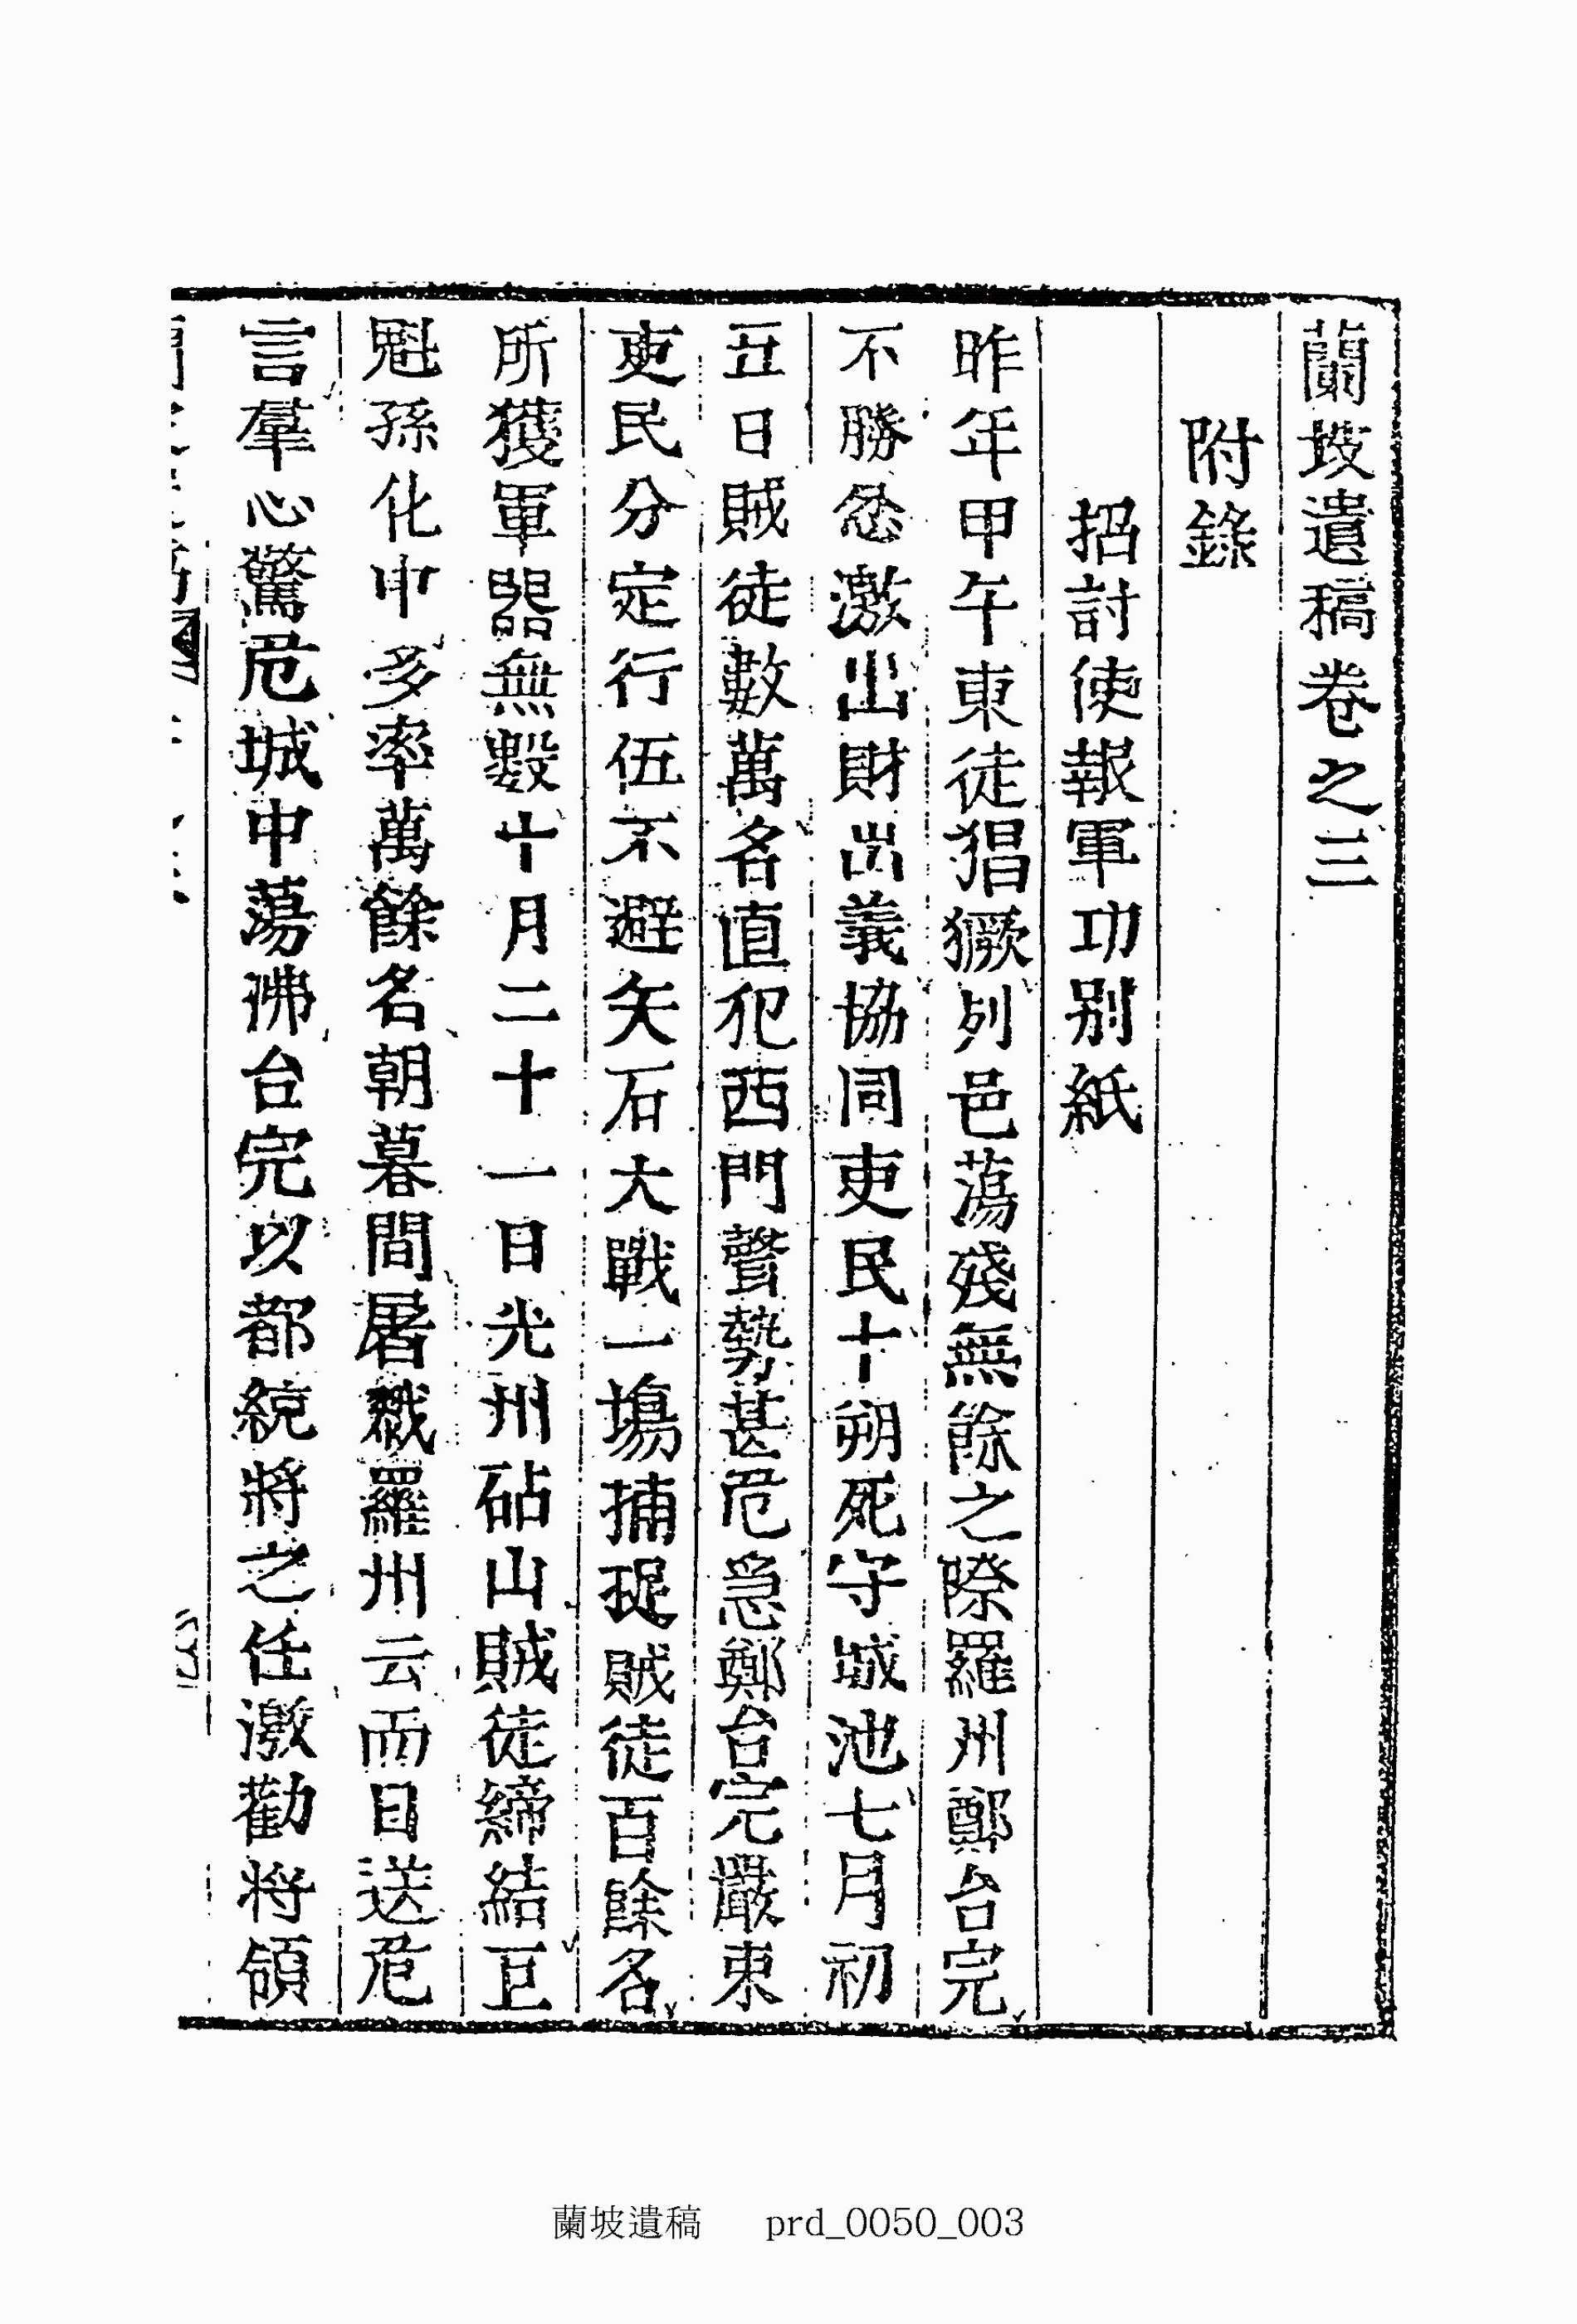 蘭坡遺稿卷之三
附錄
招討使報軍功別紙
昨年甲午東徒猖獗列邑蕩殘無餘之際羅州鄭台完
不勝忿激出財出義協同吏民十朔死守城池七月初
五日賊徒數萬名直犯西門聲勢甚危急鄭台完嚴束
吏民分定行伍不避矢石大戰一場捕捉賊徒百餘名
所獲軍器無數十月二十一日光州砧山賊徒締結巨
魁孫化中多率萬餘名朝暮間屠戮羅州云而目送危
言羣心驚危城中蕩沸台完以都統將之任激勸將領
蘭坡遺稿 prd_0050_003